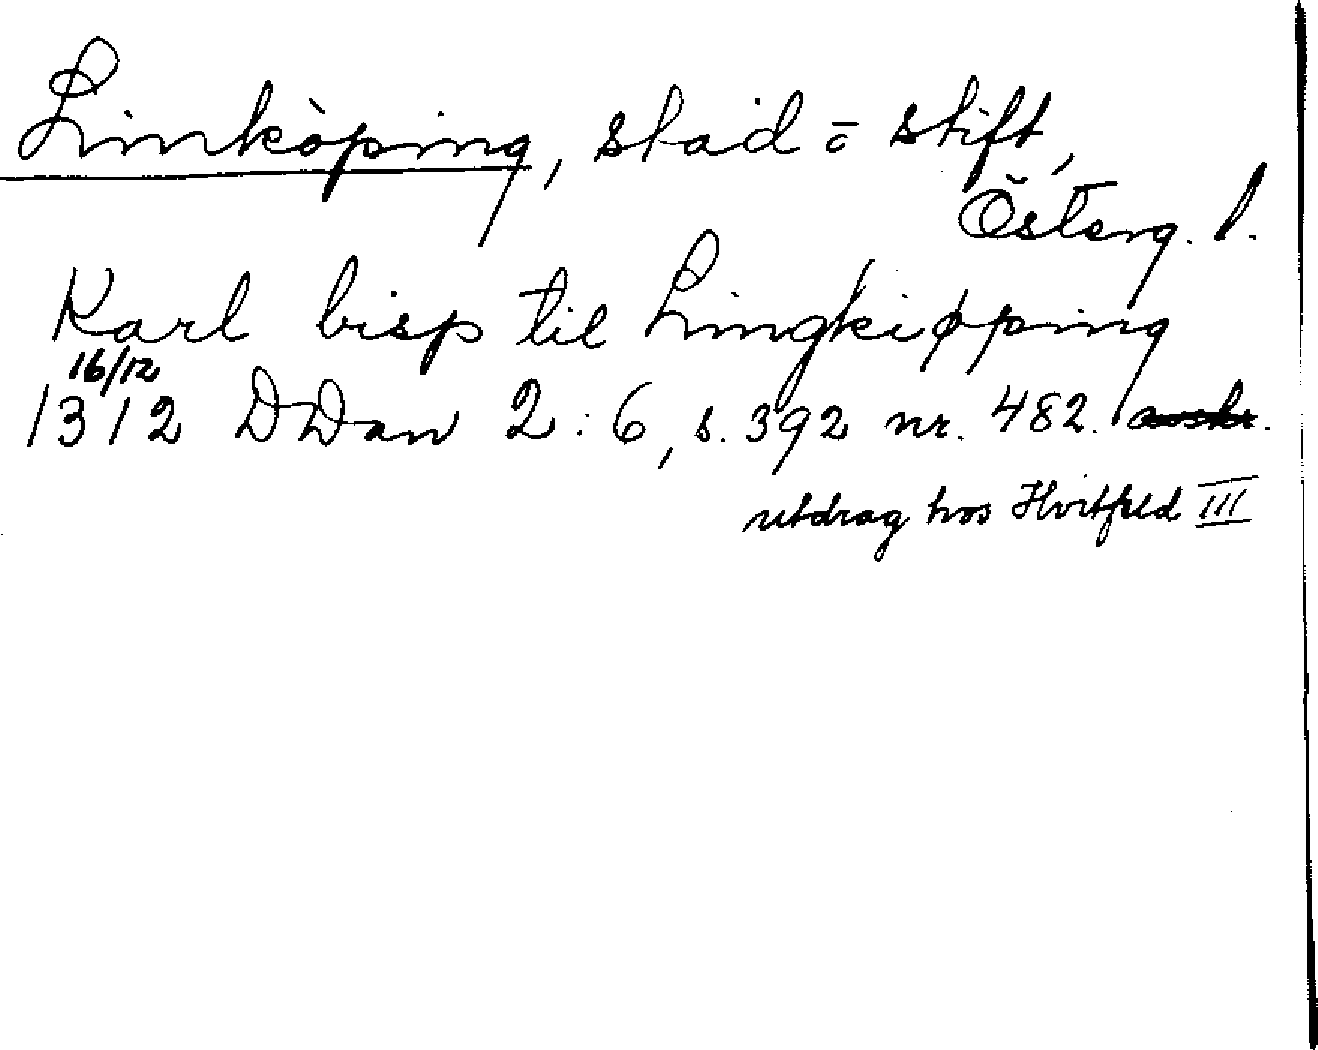 Linköping, stad o stift,
Österg. l.
Karl bisp til Lingkiøpping
16/12
1312 DDan 2:6, s. 392 nr. 482. avskr.
utdrag hos Hvitfeld III